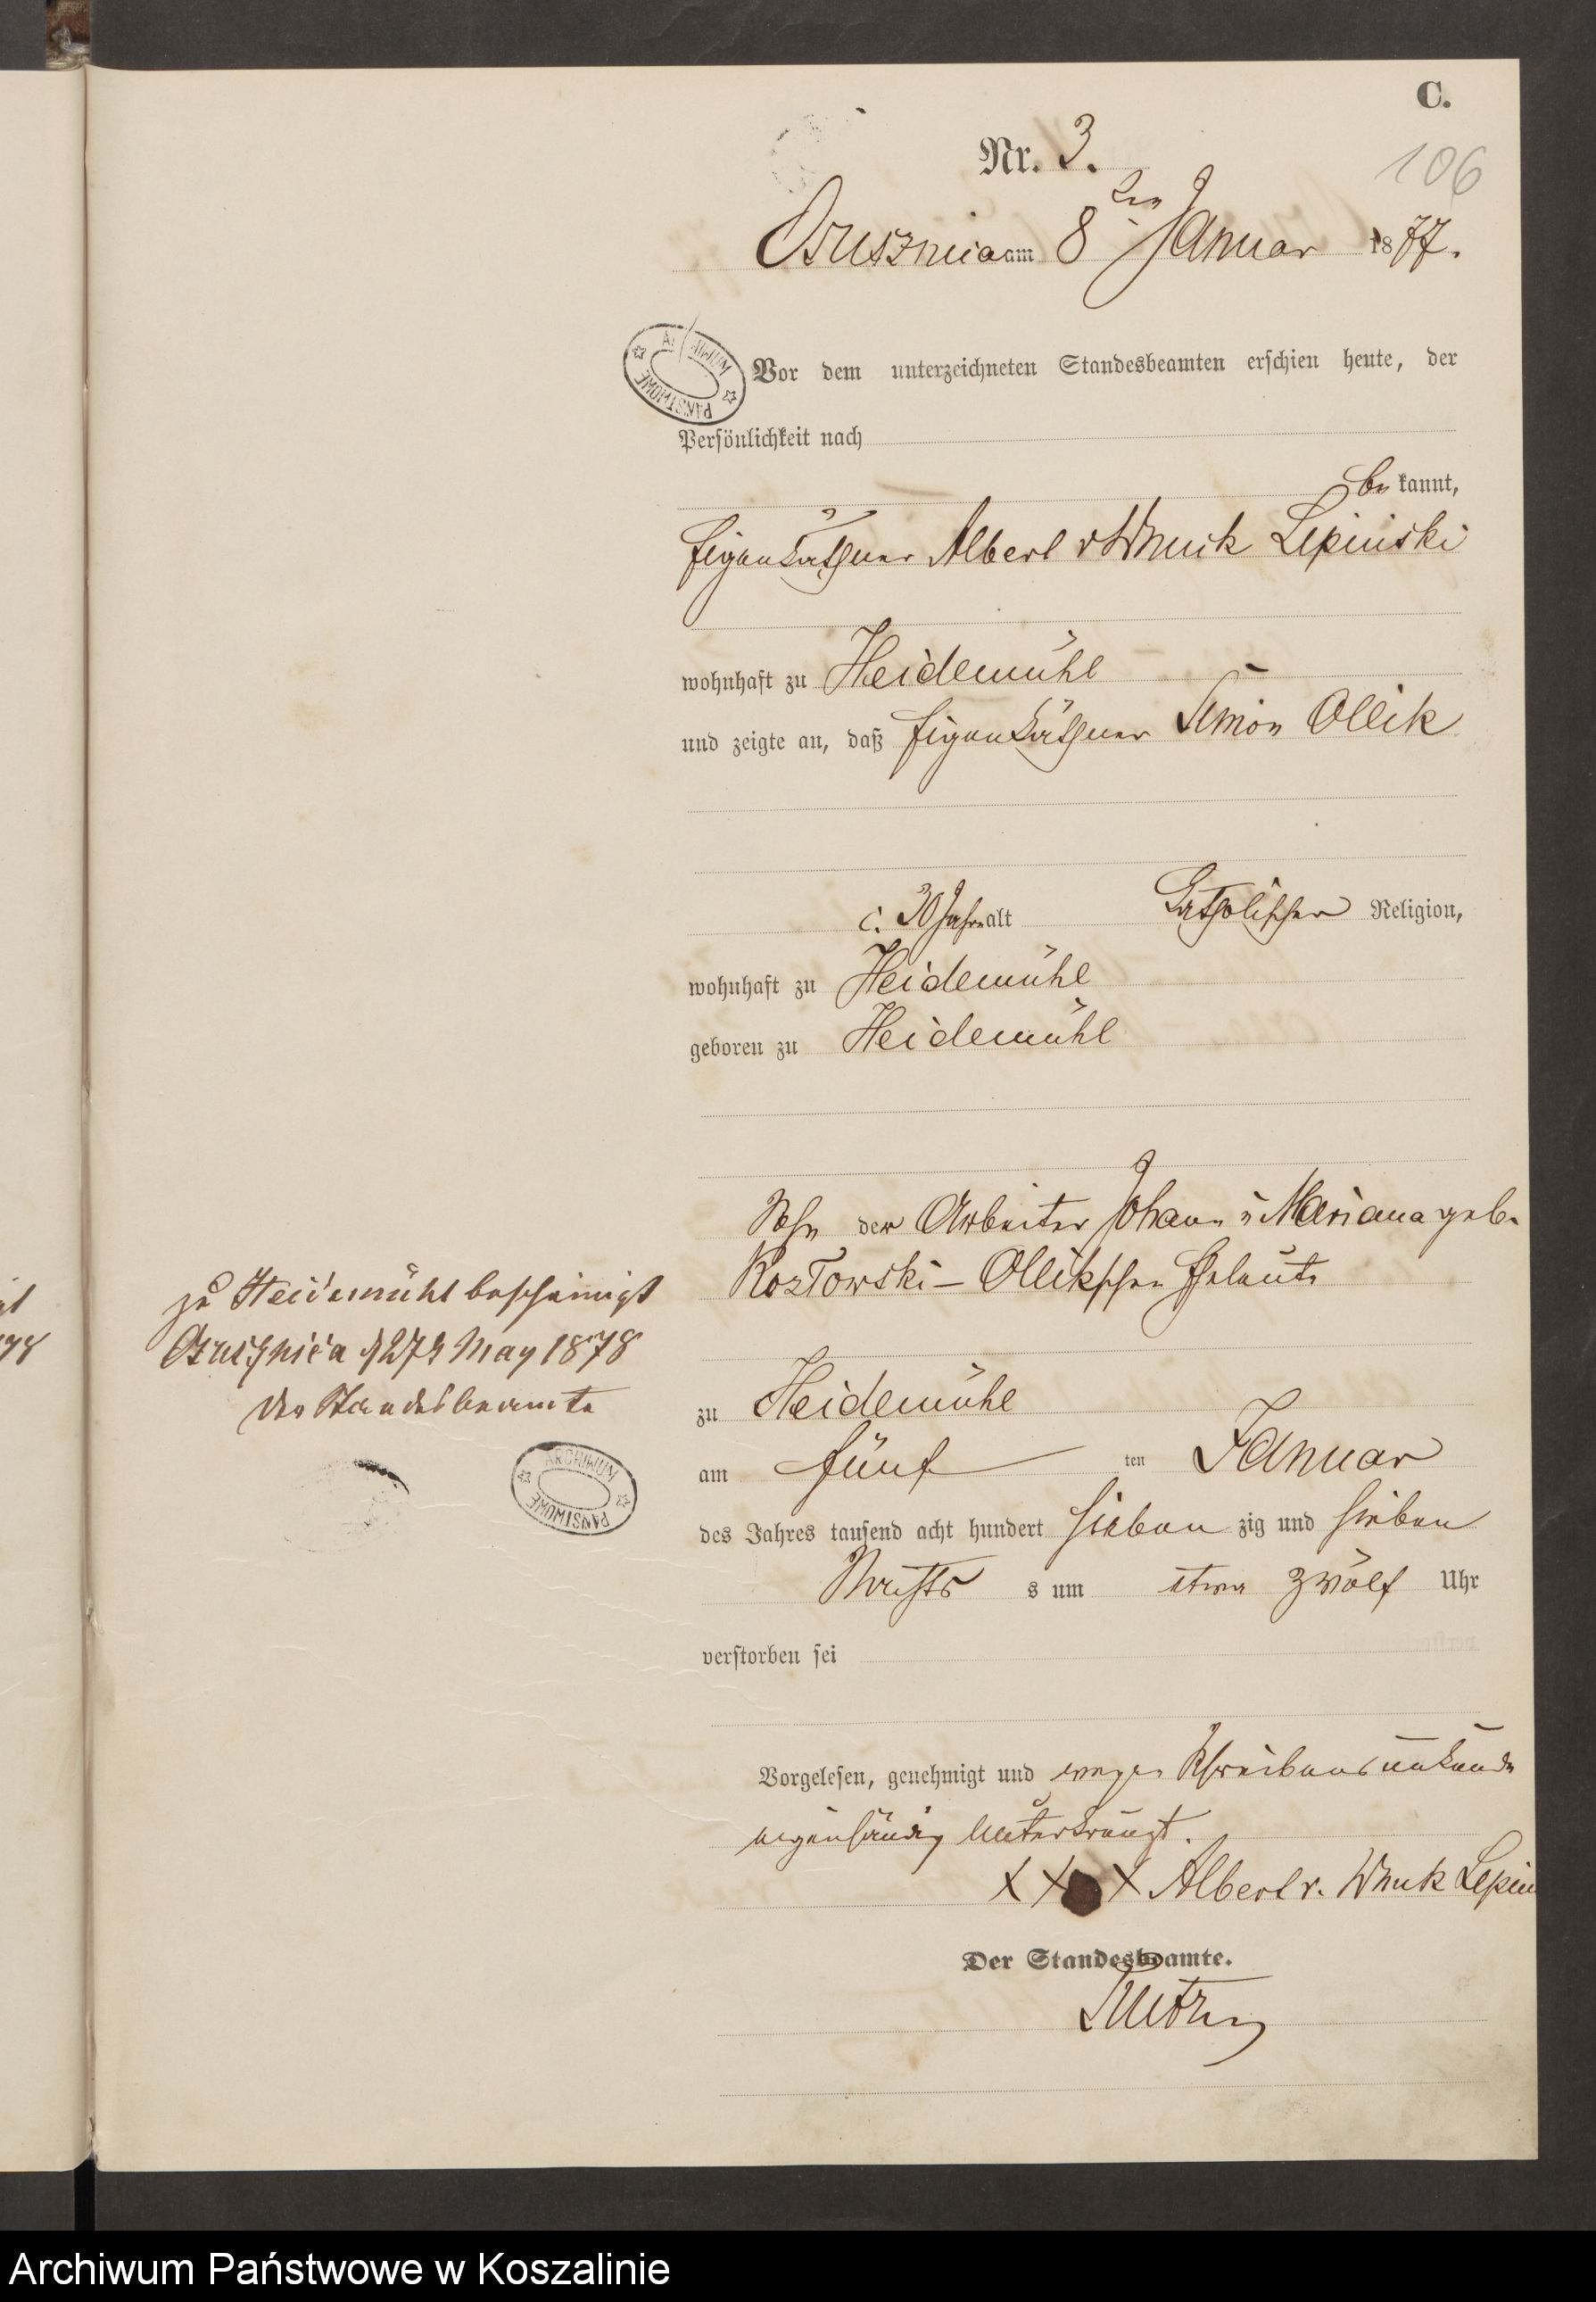 C.
Nr. 3.
106
Osusznica am 8ten Januar 1877.
ARCHIWUM PAŃSTWOWE
Vor dem unterzeichneten Standesbeamten erschien heute, der
Persönlichkeit nach
be kannt,
Eigenkäthner Albert v Wnuk Lepinski
wohnhaft zu Heidemühl
und zeigte an, daß Eigenkäthner Simon Ollik
c. 30 Jahre alt katholischer Religion,
wohnhaft zu Heidemühl
geboren zu Heidemühl
Sohn der Arbeiter Johann u Mariana geb.
Kozlowski – Ollikschen Eheleute
zu Heidemühl
am fünf ten Januar
des Jahres tausend acht hundert sieben zig und sieben
Nachts s um etwa zwölf Uhr
verstorben sei
Vorgelesen, genehmigt und wegen Schreibensunkunde
eigenhändig unterkreuzt.
X X X Albert v. Wnuk Lepin
Der Standesbeamte.
zu Heidemühl bescheinigt
27 May 1878
Der Standesbeamte
ARCHIWUM PAŃSTWOWE
Archiwum Państwowe w Koszalinie